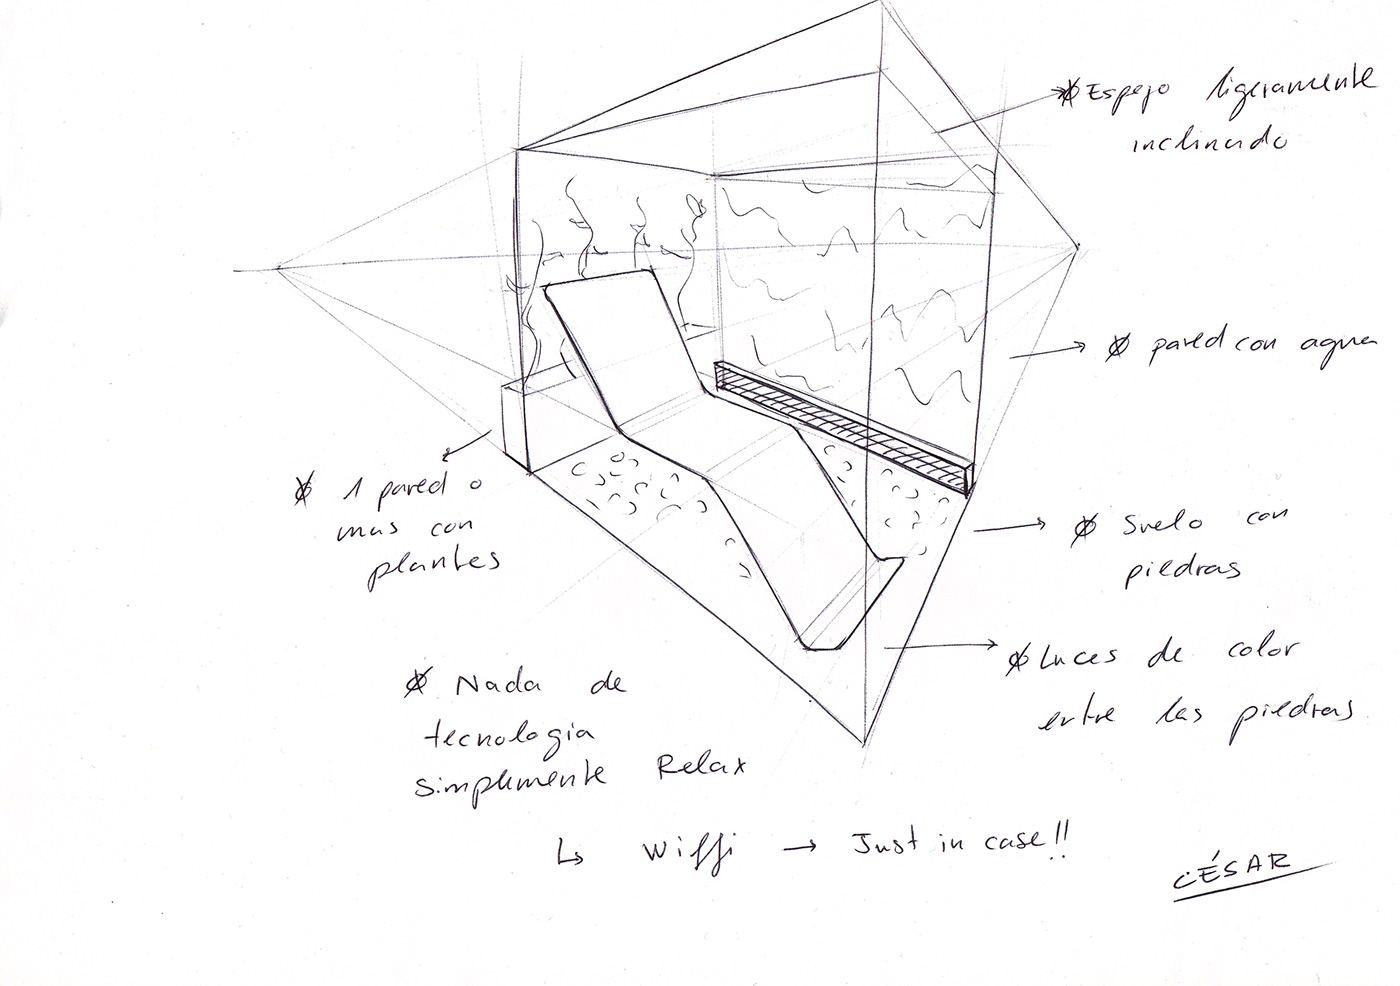 Espejo ligeramente
inclinado
pared con agua
1 pared o
mas con
plantes
Suelo con
piedras
Luces de color
entre las piedras
Nada de
tecnologia
simplemente Relax
↳ Wiffi → Just in case!!
CÉSAR